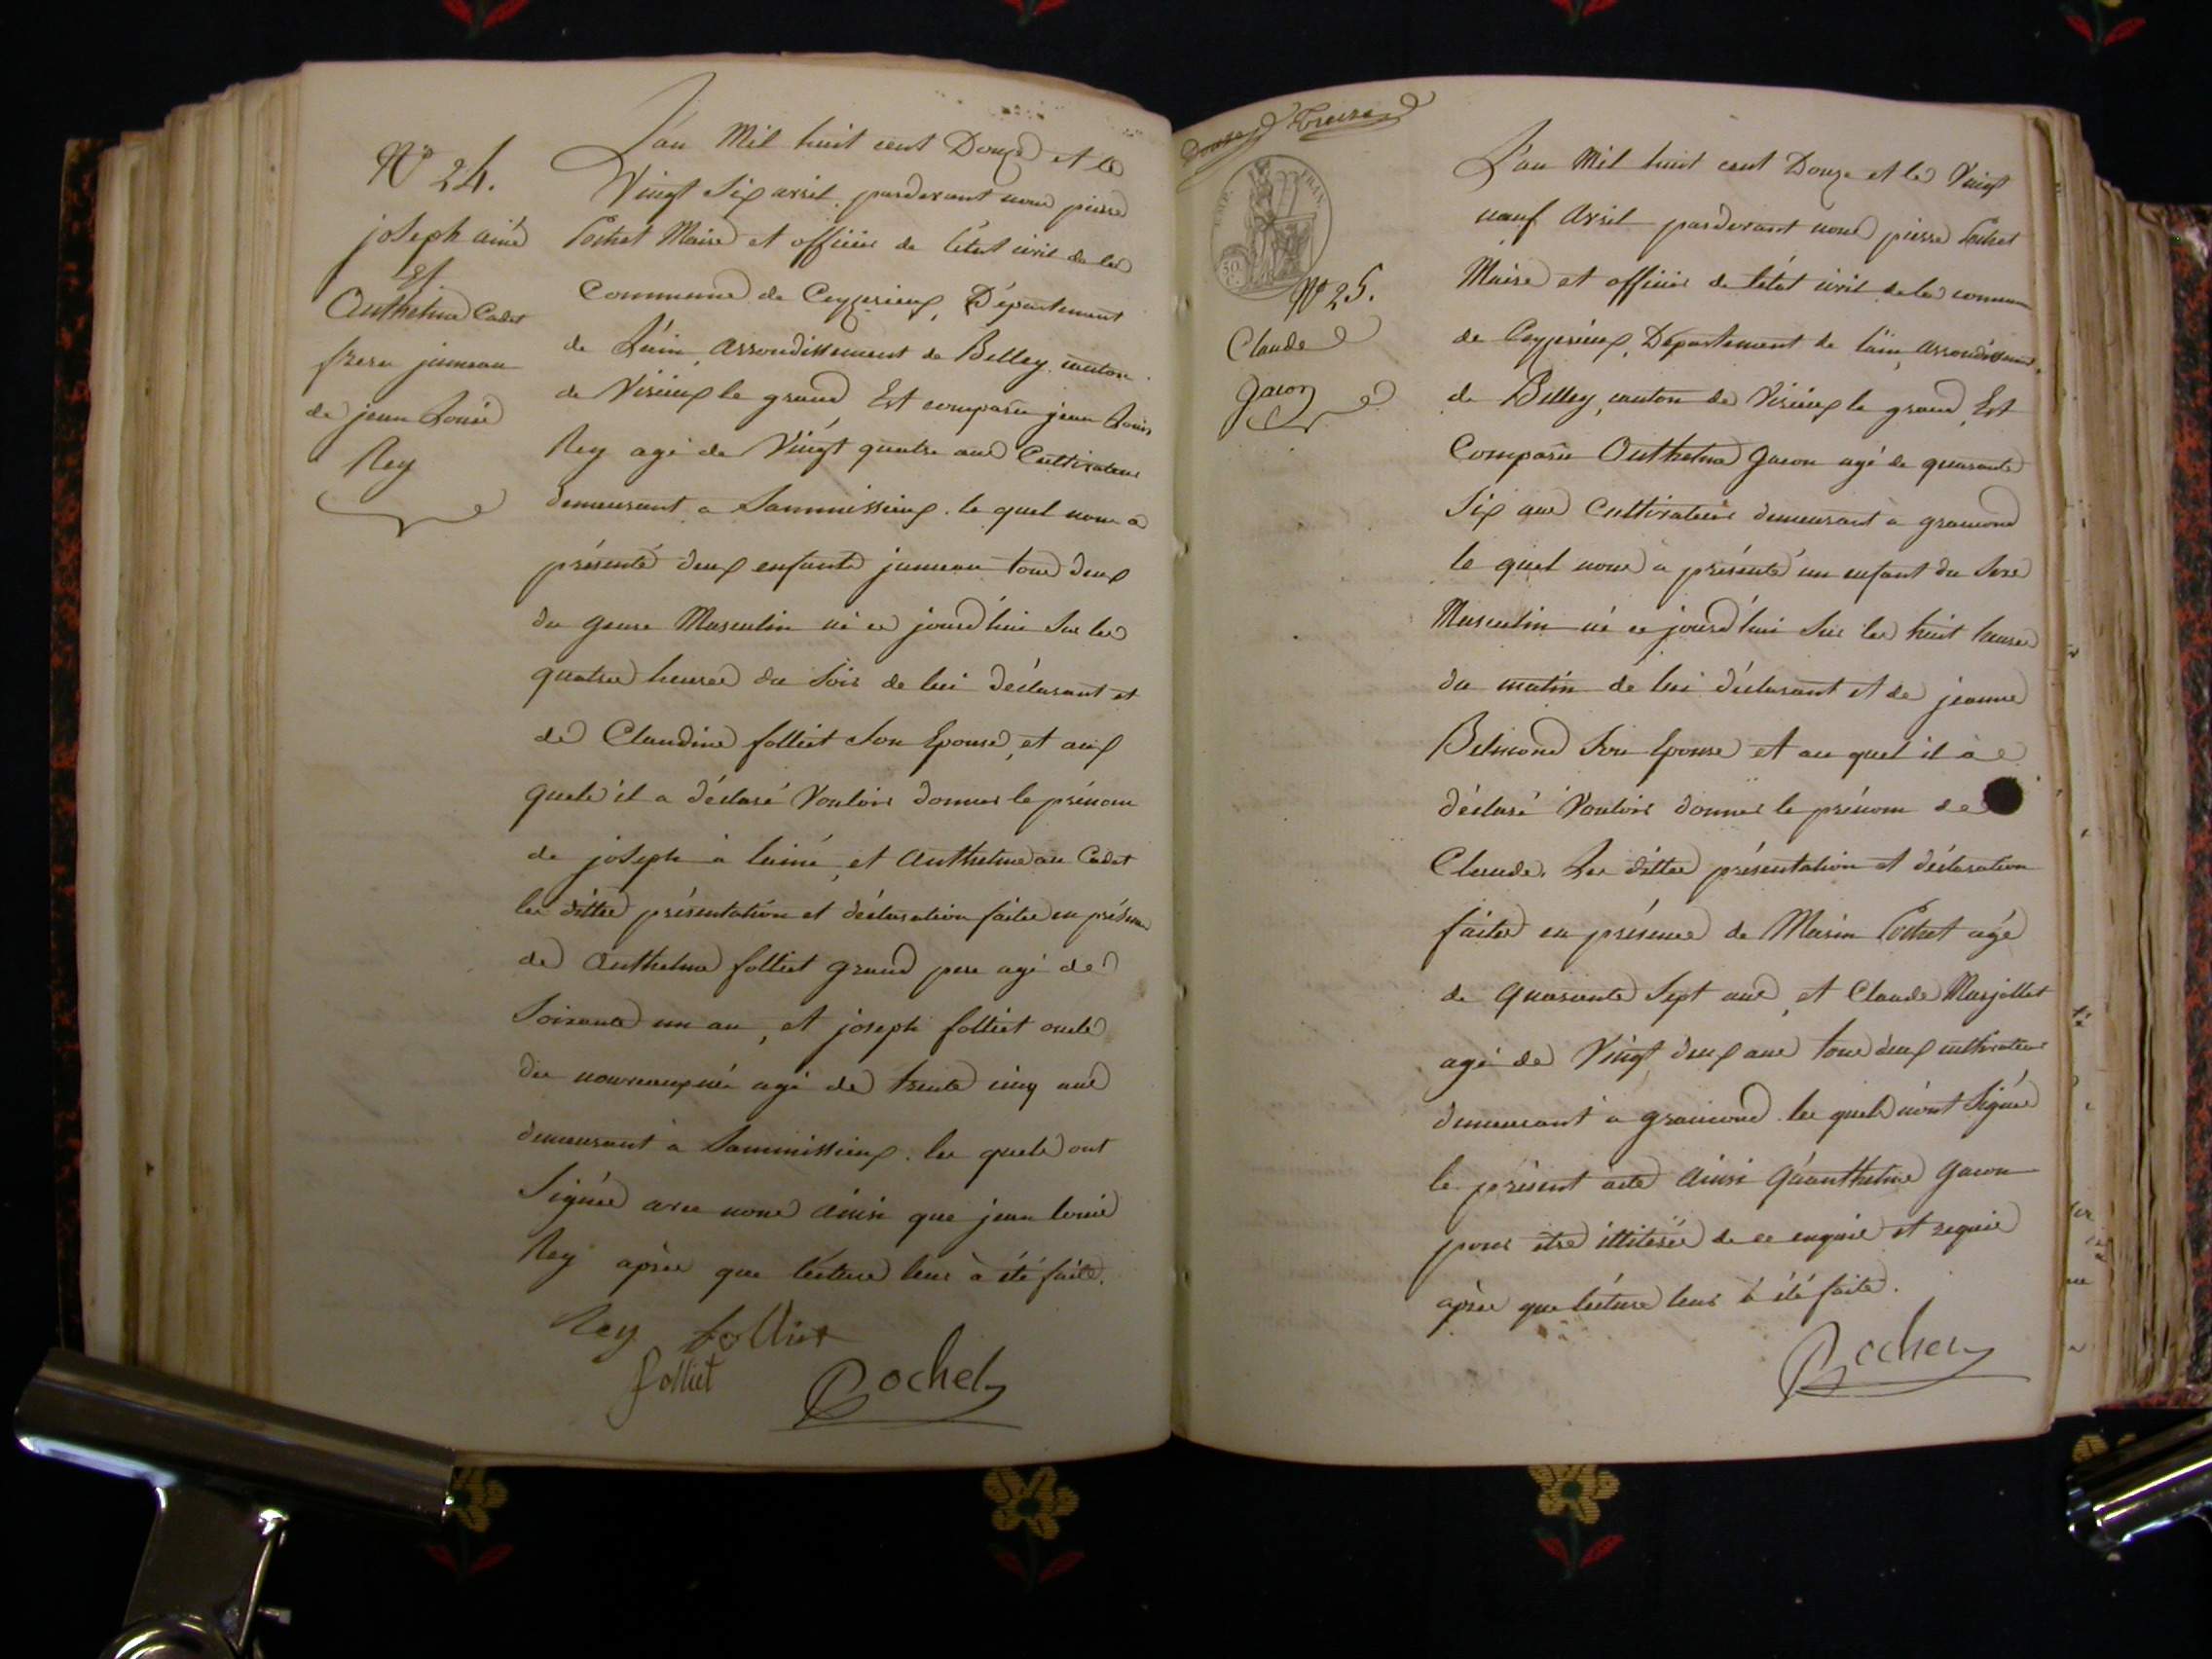 N° 24.
joseph ainé
Et
Anthelme Cadet
frere jumeau
de jean Louis
Rey
L'an Mil huit cent Douze et le
Vingt Six avril, pardevant nous pierre
Pochet Maire et officier de l'état civil de la
Commune de Ceyzerieux, Département
de L'ain, arrondissement de Belley canton
de Virieux le grand, Est comparu jean Louis
Rey agé de Vingt quatre ans Cultivateur
demeurant a Sammissieux. le quel nous a
présenté deux enfants jumeau tous deux
du genre Masculin né ce jourd'hui Sur les
quatre heures du Soir de lui déclarant et
de Claudine folliet Son Epouse, et aux
quels il a déclaré Vouloir donner le prénom
de joseph à lainé, et Anthelme au Cadet
les dittes présentation et déclaration faites en présence
de Anthelme folliet grand pere agé de
Soixante un an, et joseph folliet oncle
du nouveaux né agé de trente cinq ans
demeurant à Sammissieux. les quels ont
Signés avec nous ainsi que jean louis
Rey après que lecture leur à été faite.
Rey folliet
folliet Pochet
Douze Treize
EMP. FRAN.
50 C.
N° 25.
Claude
Gacon
L'an Mil huit cent Douze et le Vingt
neuf Avril pardevant nous pierre Pochet
Maire et officier de l'état civil de la commune
de Ceyzerieux, Département de l'ain, arrondissement
de Belley, canton de Virieux le grand, Est
Comparu Anthelme Gacon agé de quarante
Six ans Cultivateur demeurant à gramond
le quel nous a présenté un enfant du Sexe
Masculin né ce jourd'hui Sur les huit heures
du matin de lui déclarant et de jeanne
Belmond Son Epouse et au quel il à
déclaré Vouloir donner le prénom de
Claude. Les dittes présentation et déclaration
faites en présence de Marin Pochet agé
de quarante Sept ans, et Claude Marjollet
agé de Vingt deux ans tous deux cultivateur
demeurant à gramond. les quels n'ont Signés
le présent acte ainsi qu'anthelme gacon
pour être illiterés de ce enquis et requis
après que lecture leur à été faite.
Pochet